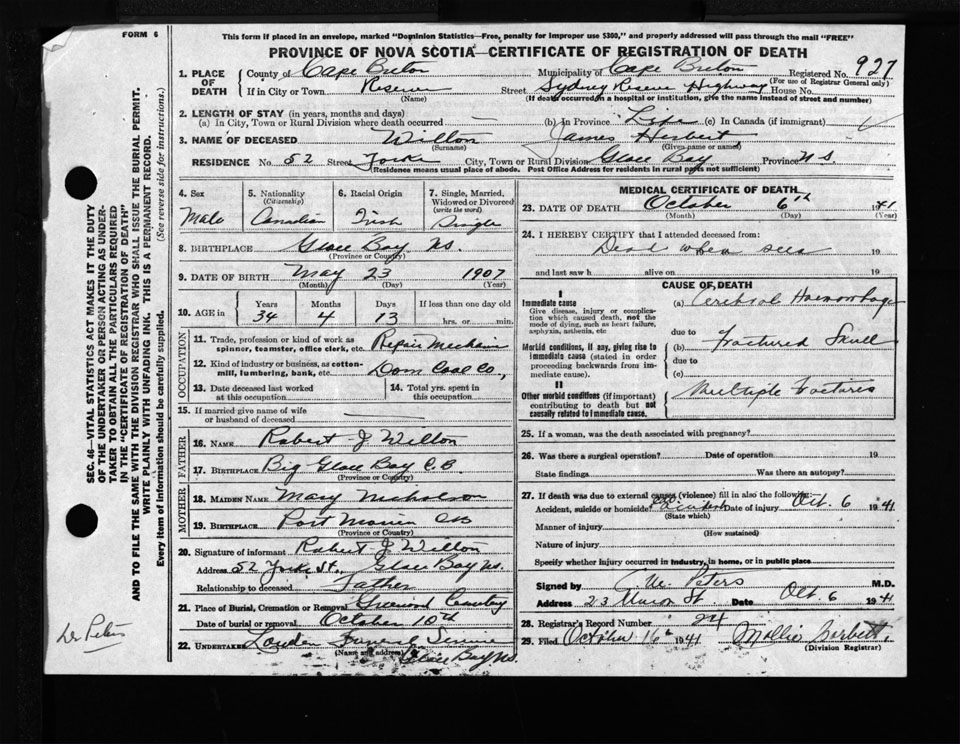 FORM 6
This form if placed in an envelope, marked "Dominion Statistics—Free, penalty for improper use $300," and properly addressed will pass through the mail "FREE"
PROVINCE OF NOVA SCOTIA—CERTIFICATE OF REGISTRATION OF DEATH
1. PLACE OF DEATH
County of Cape Breton Municipality of Cape Breton Registered No. 927
(For use of Registrar General only)
If in City or Town Reserve Street Sydney Reserve Highway House No.
(Name) (If death occurred in a hospital or institution, give the name instead of street and number)
2. LENGTH OF STAY (in years, months and days)
(a) In City, Town or Rural Division where death occurred — (b) In Province Life (c) In Canada (if immigrant)
3. NAME OF DECEASED Wilton James Herbert
(Surname) (Given name or names)
RESIDENCE No. 52 Street Yorke City, Town or Rural Division Glace Bay Province N S
(Residence means usual place of abode. Post Office Address for residents in rural parts not sufficient)
4. Sex
Male
5. Nationality
(Citizenship)
Canadian
6. Racial Origin
Irish
7. Single, Married, Widowed or Divorced
(write the word)
Single
8. BIRTHPLACE Glace Bay N.S.
(Province or County)
9. DATE OF BIRTH May 23 1907
(Month) (Day) (Year)
10. AGE in
Years 34
Months 4
Days 13
If less than one day old
hrs. or min.
OCCUPATION
11. Trade, profession or kind of work as spinner, teamster, office clerk, etc. Repair Mechanic
12. Kind of industry or business, as cotton-mill, lumbering, bank, etc. Dom Coal Co,
13. Date deceased last worked at this occupation
14. Total yrs. spent in this occupation
15. If married give name of wife or husband of deceased
FATHER
16. NAME Robert J Wilton
17. BIRTHPLACE Big Glace Bay C.B
(Province or County)
MOTHER
18. MAIDEN NAME Mary Nicholson
19. BIRTHPLACE Port Morien CB
(Province or County)
20. Signature of informant Robert J. Wilton
Address 52 Yorke St., Glace Bay N.S.
Relationship to deceased Father
21. Place of Burial, Cremation or Removal Greenwood Cemetery
Date of burial or removal October 10th
22. UNDERTAKER Funeral Service
(Name and address) Glace Bay N.S.
MEDICAL CERTIFICATE OF DEATH
23. DATE OF DEATH October 6th 1941
(Month) (Day) (Year)
24. I HEREBY CERTIFY that I attended deceased from:
Dead when seen 19
and last saw h alive on 19
CAUSE OF DEATH
I
Immediate cause
Give disease, injury or complication which caused death, not the mode of dying, such as heart failure, asphyxia, asthenia, etc
(a) Cerebral Haemorrhage
due to
Morbid conditions, if any, giving rise to immediate cause (stated in order proceeding backwards from immediate cause).
(b) Fractured Skull
due to
(c)
II
Other morbid conditions (if important) contributing to death but not causally related to immediate cause.
Multiple Fractures
25. If a woman, was the death associated with pregnancy?
26. Was there a surgical operation? Date of operation 19
State findings Was there an autopsy?
27. If death was due to external causes (violence) fill in also the following:
Accident, suicide or homicide? Accident Date of injury Oct. 6 1941
(State which)
Manner of injury
(How sustained)
Nature of injury
Specify whether injury occurred in industry, in home, or in public place
Signed by Peters M.D.
Address 23 Union St Date Oct. 6 1941
28. Registrar's Record Number 24
29. Filed October 16th 1941 Mollie
(Division Registrar)
SEC. 46—VITAL STATISTICS ACT MAKES IT THE DUTY
OF THE UNDERTAKER OR PERSON ACTING AS UNDER-
TAKER TO OBTAIN ALL THE PARTICULARS REQUIRED
IN THE "CERTIFICATE OF REGISTRATION OF DEATH"
AND TO FILE THE SAME WITH THE DIVISION REGISTRAR WHO SHALL ISSUE THE BURIAL PERMIT.
WRITE PLAINLY WITH UNFADING INK. THIS IS A PERMANENT RECORD.
Every item of Information should be carefully supplied. (See reverse side for instructions.)
Dr Peters